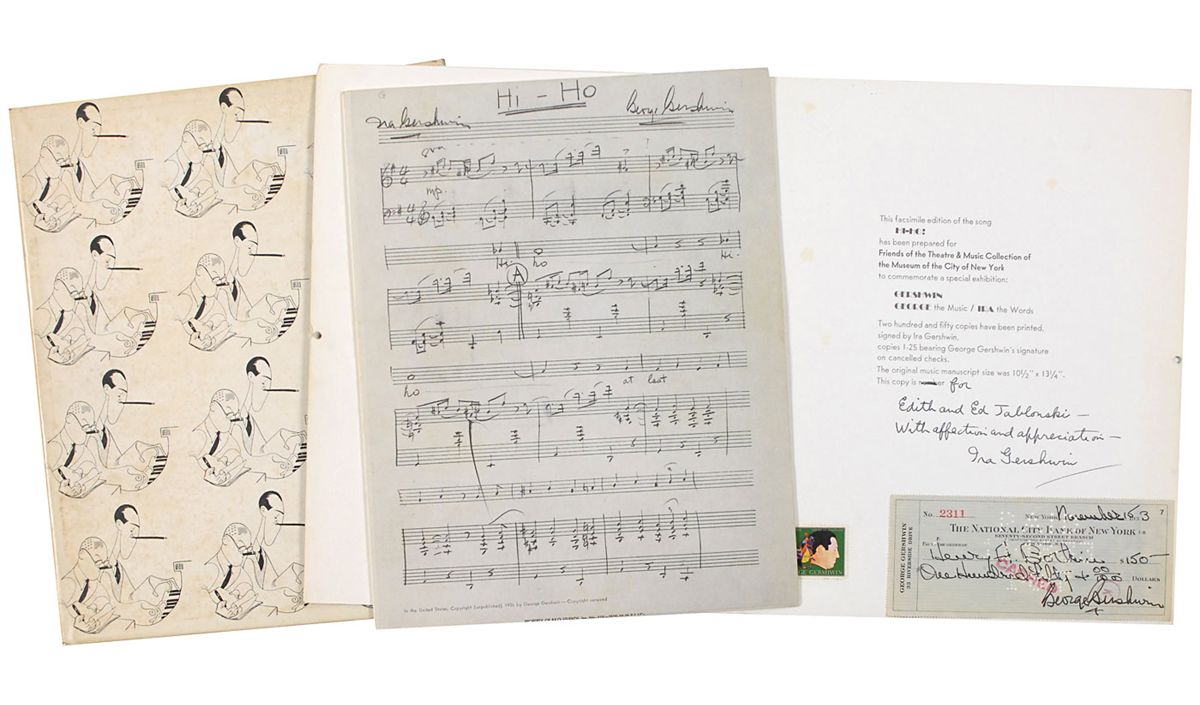 HI-HO
Ira Gershwin
George Gershwin
8va
mp
Hi- ho
A
Hi-
ho
at last
In the United States, Copyright (unpublished), 1936 by George Gershwin — Copyright renewed
This facsimile edition of the song
HI-HO!
has been prepared for
Friends of the Theatre & Music Collection of
the Museum of the City of New York
to commemorate a special exhibition:
GERSHWIN
GEORGE the Music / IRA the Words
Two hundred and fifty copies have been printed,
signed by Ira Gershwin,
copies 1-25 bearing George Gershwin's signature
on cancelled checks.
The original music manuscript size was 10½" x 13¼".
This copy is number for
Edith and Ed Jablonski —
With affection and appreciation —
Ira Gershwin
GEORGE GERSHWIN
No. 2311
NEW YORK November 16
THE NATIONAL CITY BANK OF NEW YORK
SEVENTY-SECOND STREET BRANCH
Henry $150
One Hundred Fifty + 00/100 DOLLARS
George Gershwin
GEORGE GERSHWIN
33 RIVERSIDE DRIVE